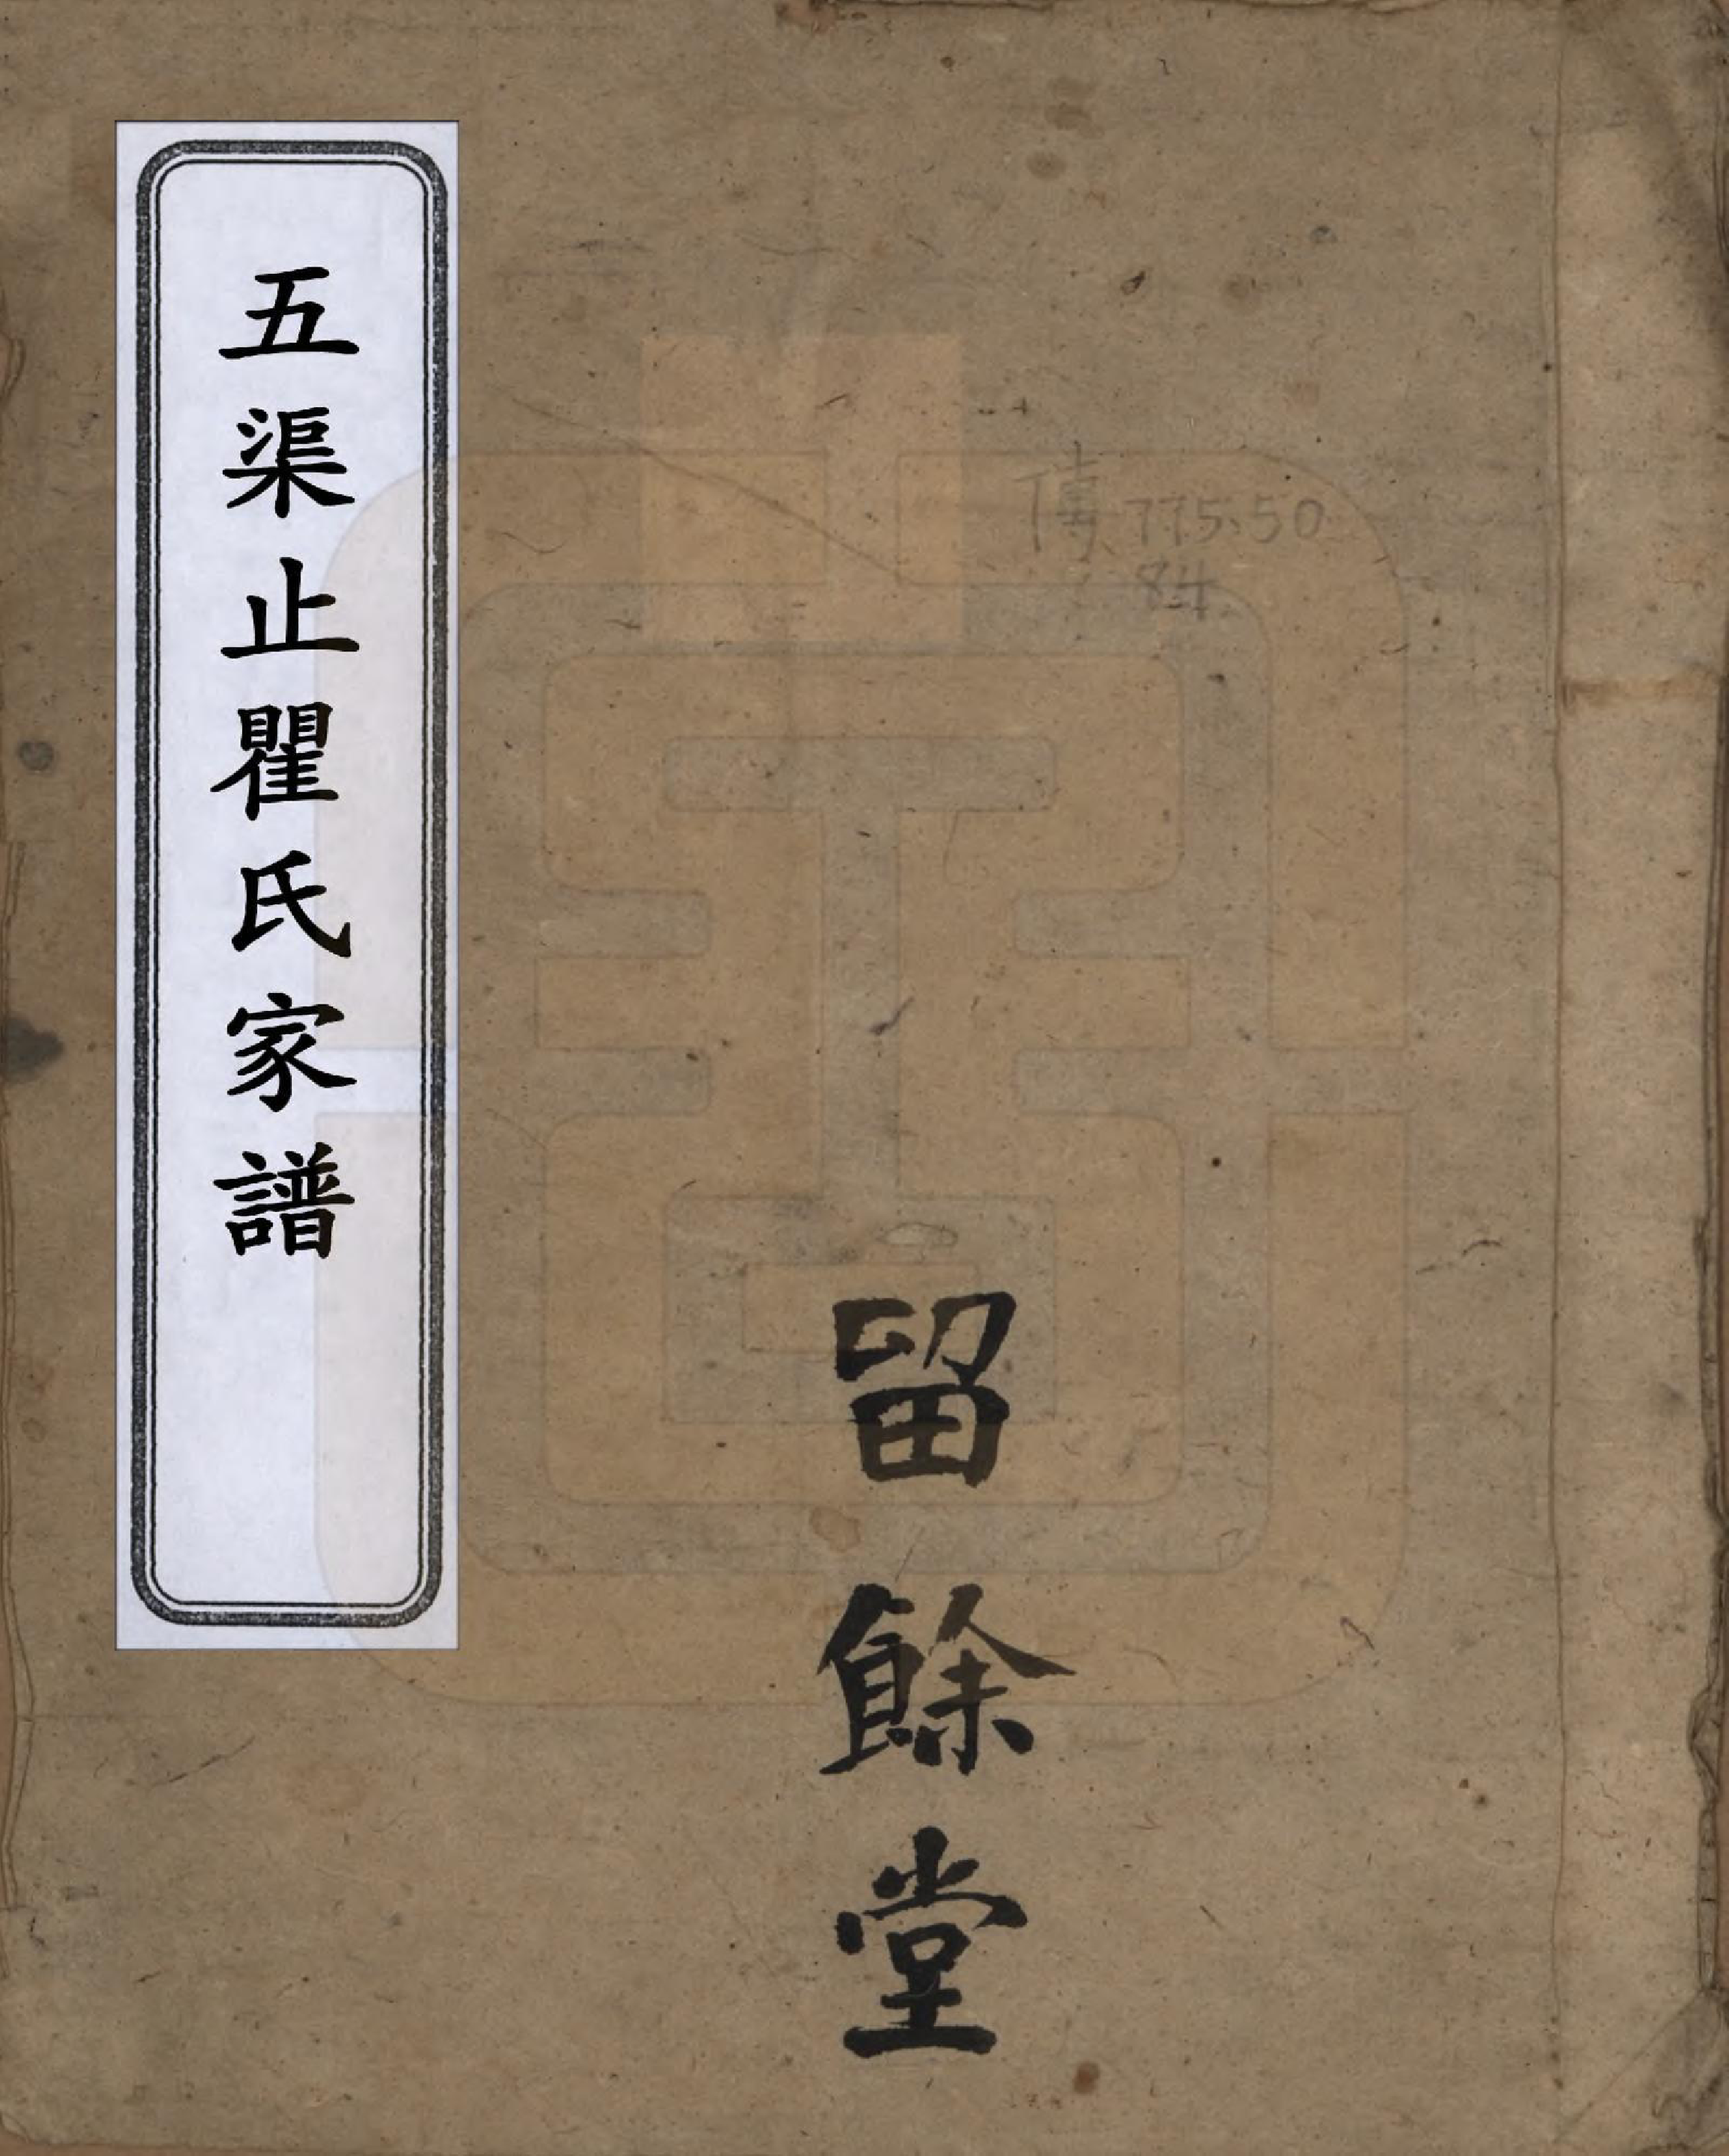 五渠止瞿氏家譜
傳 775.50
84
留餘堂